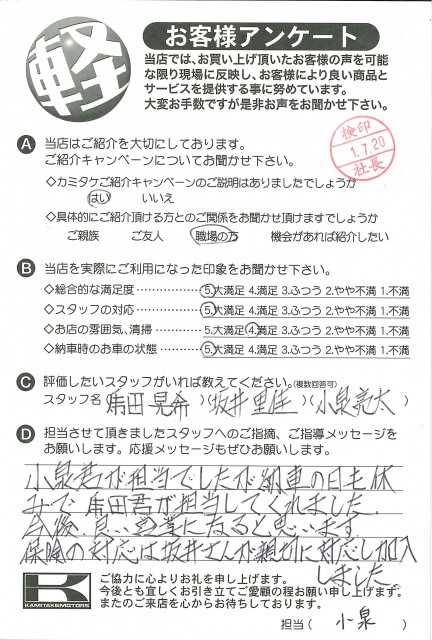 軽
お客様アンケート
当店では、お買い上げ頂いたお客様の声を可能
な限り現場に反映し、お客様により良い商品と
サービスを提供する事に努めています。
大変お手数ですが是非お声をお聞かせ下さい。
検印
1.7.20
社長
A 当店はご紹介を大切にしております。
ご紹介キャンペーンについてお聞かせ下さい。
◇カミタケご紹介キャンペーンのご説明はありましたでしょうか
はい いいえ
◇具体的にご紹介頂ける方とのご関係をお聞かせ頂けますでしょうか
ご親族 ご友人 職場の方 機会があれば紹介したい
B 当店を実際にご利用になった印象をお聞かせ下さい。
◇総合的な満足度 5.大満足 4.満足 3.ふつう 2.やや不満 1.不満
◇スタッフの対応 5.大満足 4.満足 3.ふつう 2.やや不満 1.不満
◇お店の雰囲気、清掃 5.大満足 4.満足 3.ふつう 2.やや不満 1.不満
◇納車時のお車の状態 5.大満足 4.満足 3.ふつう 2.やや不満 1.不満
C 評価したいスタッフがいれば教えてください。(複数回答可)
スタッフ名(田晃希)(坂井里佳)(小泉亮太)
D 担当させて頂きましたスタッフへのご指摘、ご指導メッセージを
お願いします。応援メッセージもぜひお願いします。
小泉君が担当でしたが納車の日は休
みで 田君が担当してくれました。
今後、良い営業になると思います
保険の対応は坂井さんが親切に対応し加入
しました。
K
KAMITAKEMOTORS
ご協力に心よりお礼を申し上げます。
今後とも宜しくお引き立てご愛顧の程お願い申し上げます。
またのご来店を心からお待ちしております。
担当( 小泉 )